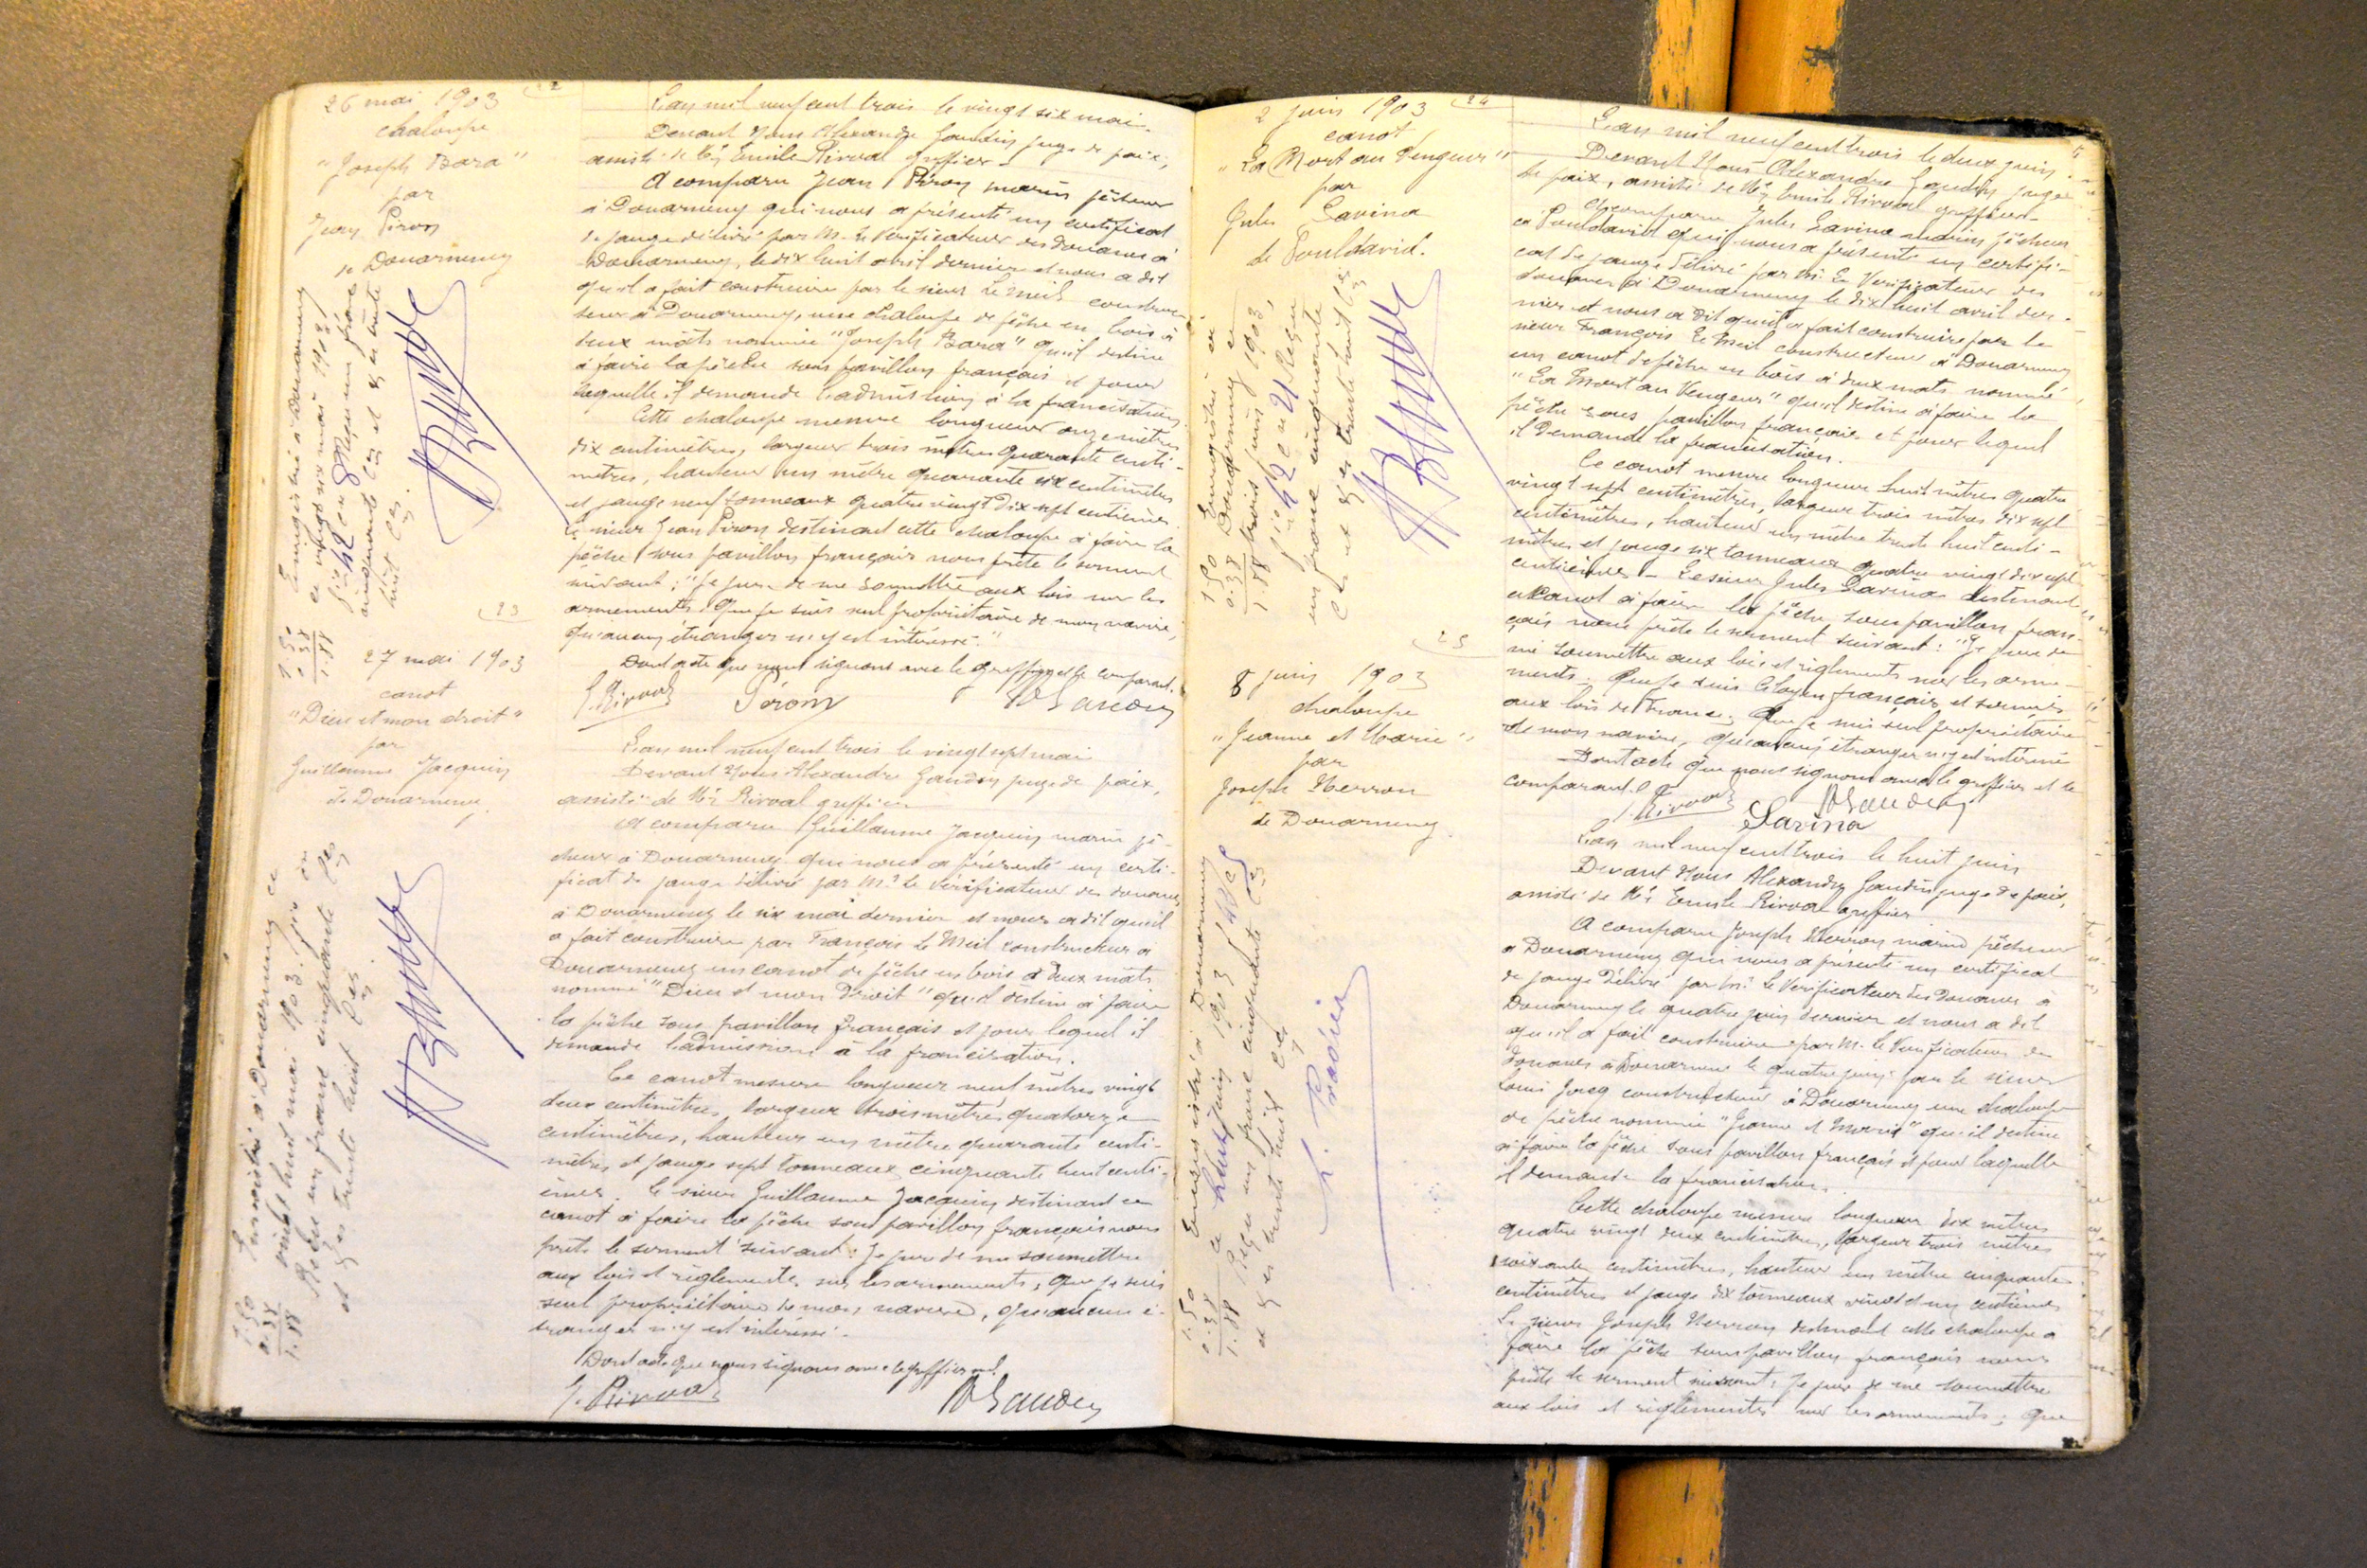 26 mai 1903
chaloupe
"Joseph Bara"
par
Jean Piron
de Douarnenez
Enregistré à Douarnenez
ce vingt six mai 1903
Reçu un franc
cinquante ces et des trente
huit ces.
1.50
0.38
1.88
22
L'an mil neuf cent trois le vingt six mai.
Devant Nous Alexandre Gaudin juge de paix,
assisté de Me Emile Rivoal greffier
A comparu Jean Piron marin pêcheur
à Douarnenez qui nous a présenté un certificat
de jauge délivré par M. le Vérificateur des Douanes à
Douarnenez, le dix huit avril dernier et nous a dit
qu'il a fait construire par le sieur Le Meil construc-
teur à Douarnenez, une chaloupe de pêche en bois à
deux mâts nommée "Joseph Bara" qu'il destine
à faire la pêche sous pavillon français et pour
laquelle il demande l'admission à la francisation.
Cette chaloupe mesure longueur onze mètres
dix centimètres, largeur trois mètres quarante centi-
mètres, hauteur un mètre quarante six centimètres
et jauge neuf tonneaux quatre vingt dix sept centièmes.
Le sieur Jean Piron destinant cette chaloupe à faire la
pêche sous pavillon français nous prête le serment
suivant : "Je jure de me soumettre aux lois sur les
armements. Que je suis seul propriétaire de mon navire,
qu'aucun étranger n'y est intéressé."
Dont acte que nous signons avec le greffier et le comparant.
E. Rivoal Péron A Gaudin
23
27 mai 1903
canot
"Dieu et mon droit"
par
Guillaume Jacquin
de Douarnenez.
Enregistré à Douarnenez ce
vingt huit mai 1903.
Reçu un franc cinquante ces
et des trente huit ces.
1.50
0.38
1.88
L'an mil neuf cent trois le vingt sept mai
Devant Nous Alexandre Gaudin juge de paix,
assisté de Me Rivoal greffier
A comparu Guillaume Jacquin marin pê-
cheur à Douarnenez qui nous a présenté un certi-
ficat de jauge délivré par Mr le Vérificateur des douanes
à Douarnenez le six mai dernier et nous a dit qu'il
a fait construire par François Le Meil constructeur à
Douarnenez un canot de pêche en bois à deux mâts
nommé "Dieu et mon Droit" qu'il destine à faire
la pêche sous pavillon français et pour lequel il
demande l'admission à la francisation.
Ce canot mesure longueur neuf mètres vingt
deux centimètres, largeur trois mètres quatorze
centimètres, hauteur un mètre quarante centi-
mètres et jauge sept tonneaux cinquante huit centi-
èmes. Le sieur Guillaume Jacquin destinant ce
canot à faire la pêche sous pavillon français nous
prête le serment suivant : Je jure de me soumettre
aux lois et règlements sur les armements, que je suis
seul propriétaire de mon navire, qu'aucun é-
tranger n'y est intéressé.
Dont acte que nous signons avec le greffier
E. Rivoal A Gaudin
24
2 juin 1903
canot
"La Mort au Vengeur"
par
Jules Savina
de Pouldavid.
Enregistré à
Douarnenez ce
trois juin 1903,
Reçu
un franc cinquante
ces et des trente huit ces
1.50
0.38
1.88
L'an mil neuf cent trois le deux juin.
Devant Nous Alexandre Gaudin juge
de paix, assisté de Me Emile Rivoal greffier
A comparu Jules Savina marin pêcheur
à Pouldavid qui nous a présenté un certifi-
cat de jauge délivré par Mr Le Vérificateur des
douanes à Douarnenez le dix huit avril der-
nier et nous a dit qu'il a fait construire par le
sieur François Le Meil constructeur à Douarnenez
un canot de pêche en bois à deux mâts nommé
"La Mort au Vengeur" qu'il destine à faire la
pêche sous pavillon français et pour lequel
il demande la francisation.
Ce canot mesure longueur huit mètres quatre
vingt sept centimètres, largeur trois mètres dix sept
centimètres, hauteur un mètre trente huit centi-
mètres et jauge six tonneaux quatre vingt dix sept
centièmes. Le sieur Jules Savina destinant
ce canot à faire la pêche sous pavillon fran-
çais nous prête le serment suivant : "Je jure de
me soumettre aux lois et règlements sur les arme-
ments. Que je suis citoyen français et soumis
aux lois de France. Que je suis seul propriétaire
de mon navire, qu'aucun étranger n'y est intéressé
Dont acte que nous signons avec le greffier et le
comparant.
E. Rivoal A Gaudin
Savina
25
8 juin 1903
chaloupe
"Jeanne et Marie"
par
Joseph Herron
de Douarnenez.
Enregistré à Douarnenez
ce huit juin 1903
Reçu un franc cinquante ces
et des trente huit ces
1.50
0.38
1.88
L'an mil neuf cent trois le huit juin
Devant Nous Alexandre Gaudin juge de paix,
assisté de Me Emile Rivoal greffier
A comparu Joseph Herron marin pêcheur
à Douarnenez qui nous a présenté un certificat
de jauge délivré par Mr Le Vérificateur des Douanes à
Douarnenez le quatre juin dernier et nous a dit
qu'il a fait construire par M. le Vérificateur des
douanes à Douarnenez le quatre juin par le sieur
Louis Jacq constructeur à Douarnenez une chaloupe
de pêche nommée "Jeanne et Marie" qu'il destine
à faire la pêche sous pavillon français et pour laquelle
il demande la francisation.
Cette chaloupe mesure longueur dix mètres
quatre vingt deux centimètres, largeur trois mètres
soixante centimètres, hauteur un mètre cinquante
centimètres et jauge dix tonneaux vingt et un centièmes
Le sieur Joseph Herron destinant cette chaloupe à
faire la pêche sous pavillon français nous
prête le serment suivant : Je jure de me soumettre
aux lois et règlements sur les armements ; que